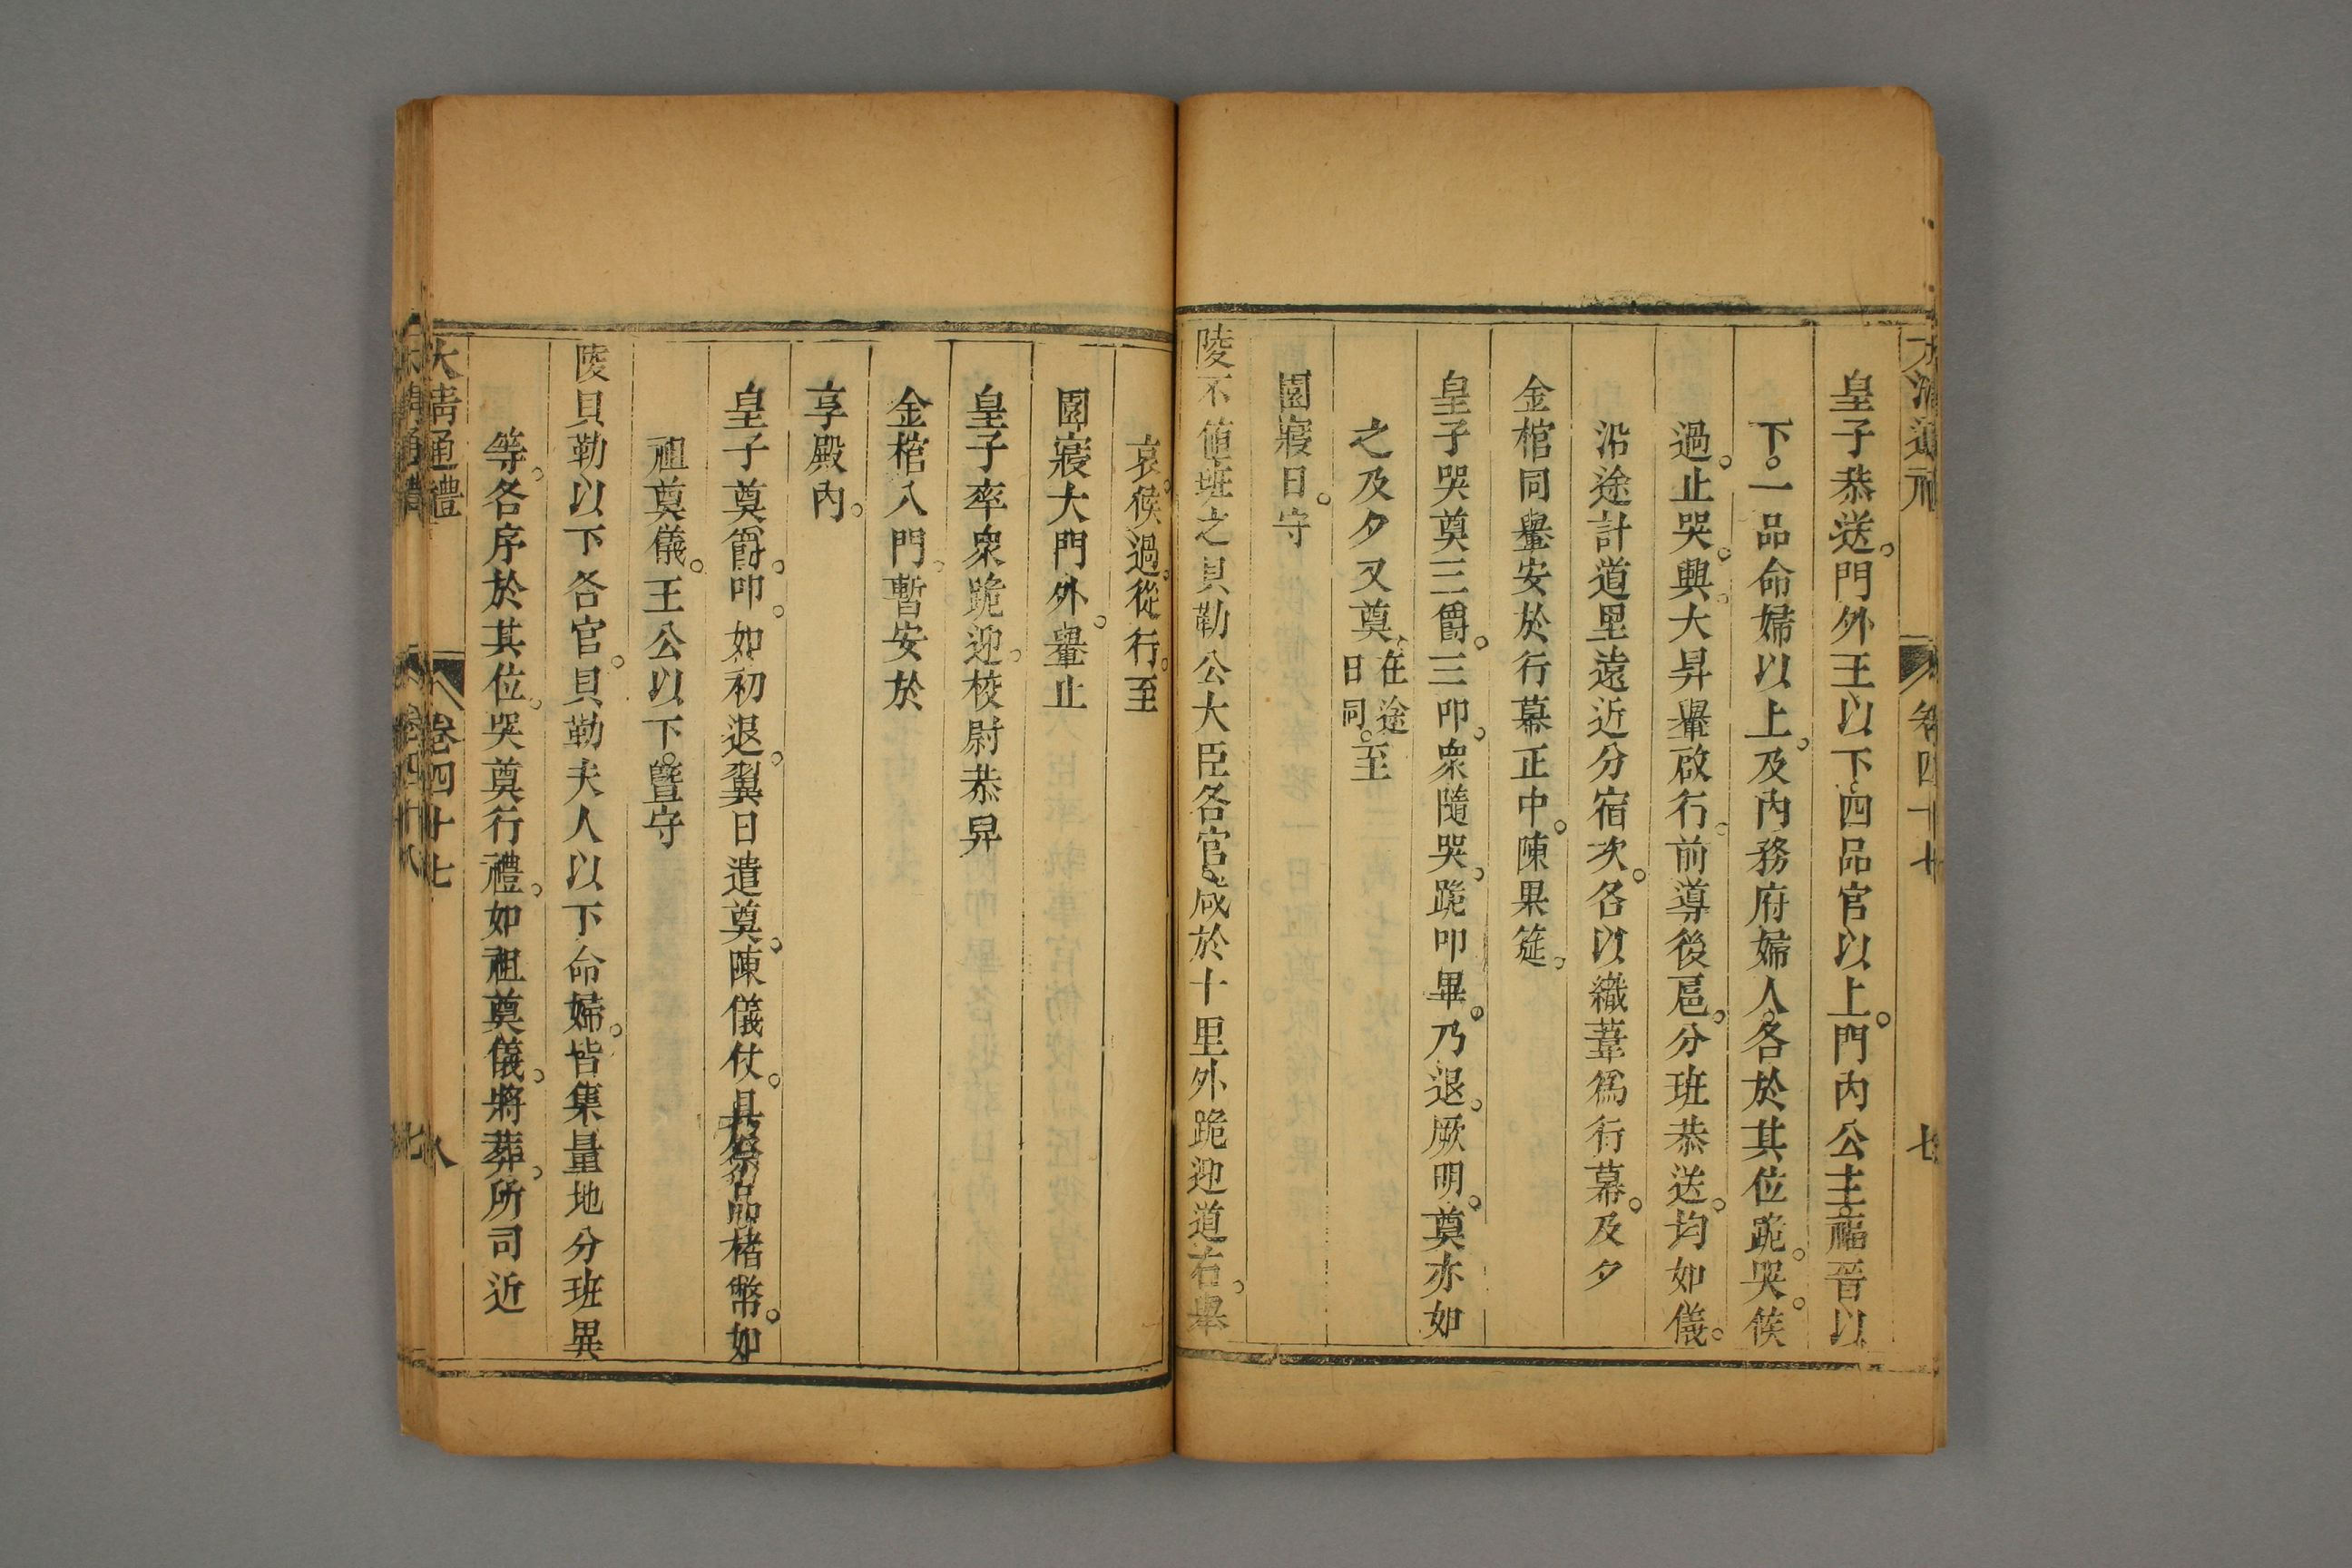 皇子恭送。門外王以下四品官以上。門內公主。福晉以
下。一品命婦以上。及內務府婦人。各於其位跪。哭。候
過。止哭。興。大昇轝啟行。前導後扈。分班恭送。均如儀。
沿途計道里遠近分宿次。各以織葦爲行幕。及夕
金棺同轝安於行幕正中。陳果筵。
皇子哭奠三爵。三叩。衆隨哭。跪叩畢。乃退。厥明。奠亦如
之及夕又奠在途日同。至
園寢日。守
陵不値班之貝勒公大臣各官。咸於十里外跪迎道右。舉
哀。候過。從行。至
園寢大門外。轝止
皇子率衆跪迎。校尉恭舁
金棺入門。暫安於
享殿內。
皇子奠爵。叩。如初退。翼日遣奠。陳儀仗。具祭品楮幣。如
祖奠儀。王公以下。曁守
陵貝勒以下各官。貝勒夫人以下命婦。皆集量地分班異
等。各序於其位。哭奠行禮。如祖奠儀。將葬。所司近
大清通禮 卷四十七 八
卷四十七 七